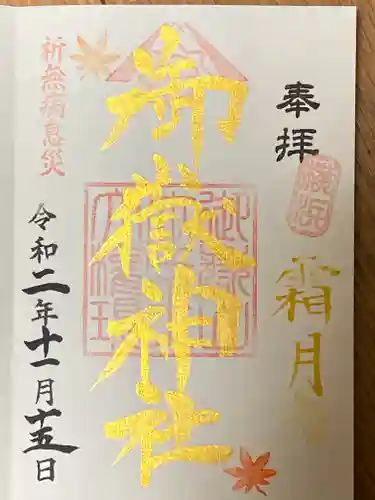 奉拝
霜月
御嶽神社
祈無病息災
令和二年十一月十五日